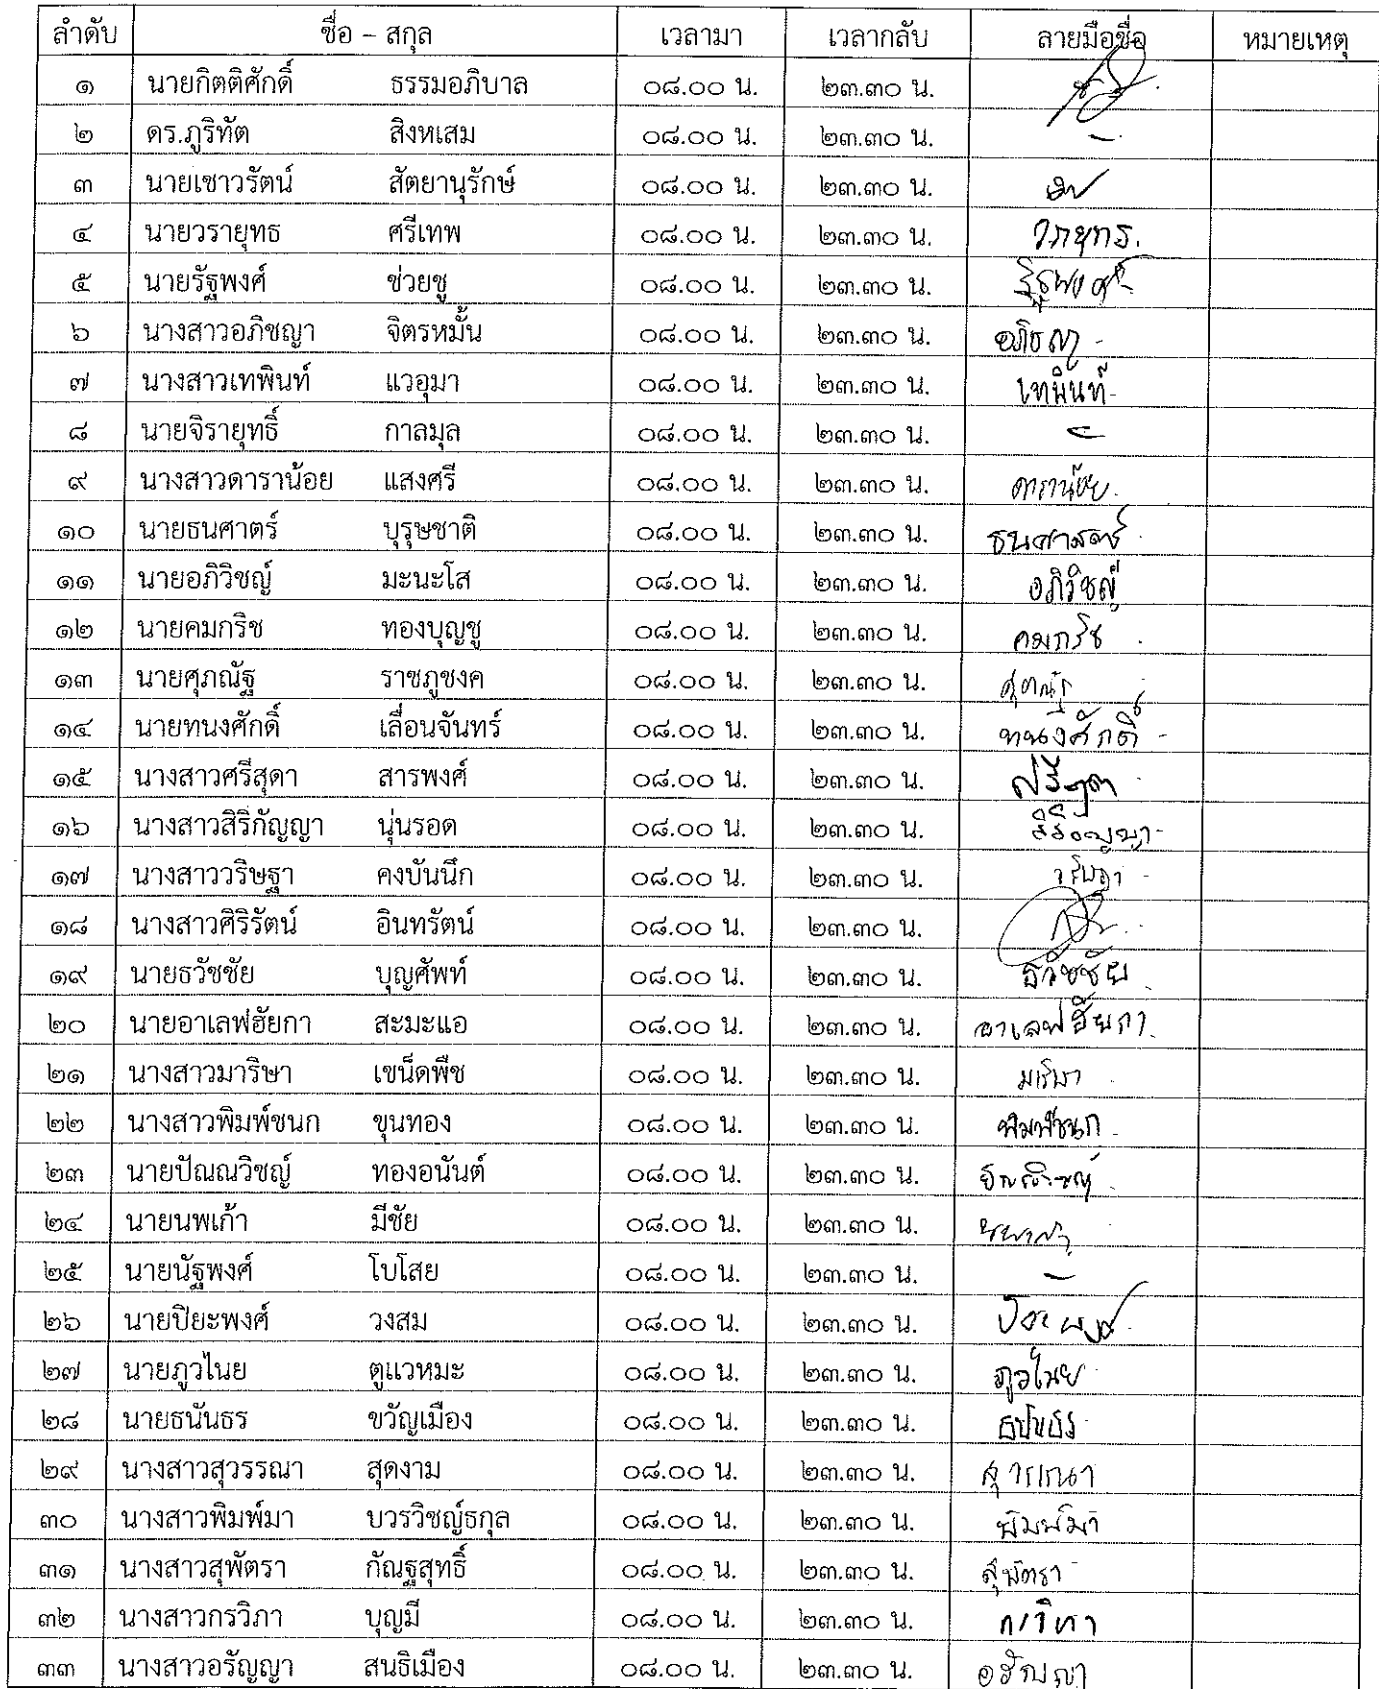 ลำดับ ชื่อ – สกุล เวลามา เวลากลับ ลายมือชื่อ หมายเหตุ
๑ นายกิตติศักดิ์ ธรรมอภิบาล ๐๘.๐๐ น. ๒๓.๓๐ น.
๒ ดร.ภูริทัต สิงหเสม ๐๘.๐๐ น. ๒๓.๓๐ น. –
๓ นายเชาวรัตน์ สัตยานุรักษ์ ๐๘.๐๐ น. ๒๓.๓๐ น.
๔ นายวรายุทธ ศรีเทพ ๐๘.๐๐ น. ๒๓.๓๐ น. วรายุทธ.
๕ นายรัฐพงศ์ ช่วยชู ๐๘.๐๐ น. ๒๓.๓๐ น. รัฐพงศ์
๖ นางสาวอภิชญา จิตรหมั้น ๐๘.๐๐ น. ๒๓.๓๐ น. อภิชญา
๗ นางสาวเทพินท์ แวอุมา ๐๘.๐๐ น. ๒๓.๓๐ น. เทพินท์
๘ นายจิรายุทธิ์ กาลมุล ๐๘.๐๐ น. ๒๓.๓๐ น. –
๙ นางสาวดาราน้อย แสงศรี ๐๘.๐๐ น. ๒๓.๓๐ น. ดาราน้อย
๑๐ นายธนศาตร์ บุรุษชาติ ๐๘.๐๐ น. ๒๓.๓๐ น. ธนศาสตร์
๑๑ นายอภิวิชญ์ มะนะโส ๐๘.๐๐ น. ๒๓.๓๐ น. อภิวิชญ์
๑๒ นายคมกริช ทองบุญชู ๐๘.๐๐ น. ๒๓.๓๐ น. คมกริช
๑๓ นายศุภณัฐ ราชภูชงค ๐๘.๐๐ น. ๒๓.๓๐ น. ศุภณัฐ
๑๔ นายทนงศักดิ์ เลื่อนจันทร์ ๐๘.๐๐ น. ๒๓.๓๐ น. ทนงศักดิ์
๑๕ นางสาวศรีสุดา สารพงศ์ ๐๘.๐๐ น. ๒๓.๓๐ น. ศรีสุดา
๑๖ นางสาวสิริกัญญา นุ่นรอด ๐๘.๐๐ น. ๒๓.๓๐ น. สิริกัญญา
๑๗ นางสาววริษฐา คงบันนึก ๐๘.๐๐ น. ๒๓.๓๐ น. วริษฐา
๑๘ นางสาวศิริรัตน์ อินทรัตน์ ๐๘.๐๐ น. ๒๓.๓๐ น.
๑๙ นายธวัชชัย บุญศัพท์ ๐๘.๐๐ น. ๒๓.๓๐ น. ธวัชชัย
๒๐ นายอาเลฟฮัยกา สะมะแอ ๐๘.๐๐ น. ๒๓.๓๐ น. อาเลฟฮัยกา
๒๑ นางสาวมาริษา เขน็ดพืช ๐๘.๐๐ น. ๒๓.๓๐ น. มาริษา
๒๒ นางสาวพิมพ์ชนก ขุนทอง ๐๘.๐๐ น. ๒๓.๓๐ น. พิมพ์ชนก
๒๓ นายปัณณวิชญ์ ทองอนันต์ ๐๘.๐๐ น. ๒๓.๓๐ น. ปัณณวิชญ์
๒๔ นายนพเก้า มีชัย ๐๘.๐๐ น. ๒๓.๓๐ น.
๒๕ นายนัฐพงศ์ โบโสย ๐๘.๐๐ น. ๒๓.๓๐ น. –
๒๖ นายปิยะพงศ์ วงสม ๐๘.๐๐ น. ๒๓.๓๐ น. ปิยะพงศ์
๒๗ นายภูวไนย ตูแวหมะ ๐๘.๐๐ น. ๒๓.๓๐ น. ภูวไนย
๒๘ นายธนันธร ขวัญเมือง ๐๘.๐๐ น. ๒๓.๓๐ น. ธนันธร
๒๙ นางสาวสุวรรณา สุดงาม ๐๘.๐๐ น. ๒๓.๓๐ น. สุวรรณา
๓๐ นางสาวพิมพ์มา บวรวิชญ์ธกุล ๐๘.๐๐ น. ๒๓.๓๐ น. พิมพ์มา
๓๑ นางสาวสุพัตรา กัณฐสุทธิ์ ๐๘.๐๐ น. ๒๓.๓๐ น. สุพัตรา
๓๒ นางสาวกรวิภา บุญมี ๐๘.๐๐ น. ๒๓.๓๐ น. กรวิภา
๓๓ นางสาวอรัญญา สนธิเมือง ๐๘.๐๐ น. ๒๓.๓๐ น. อรัญญา